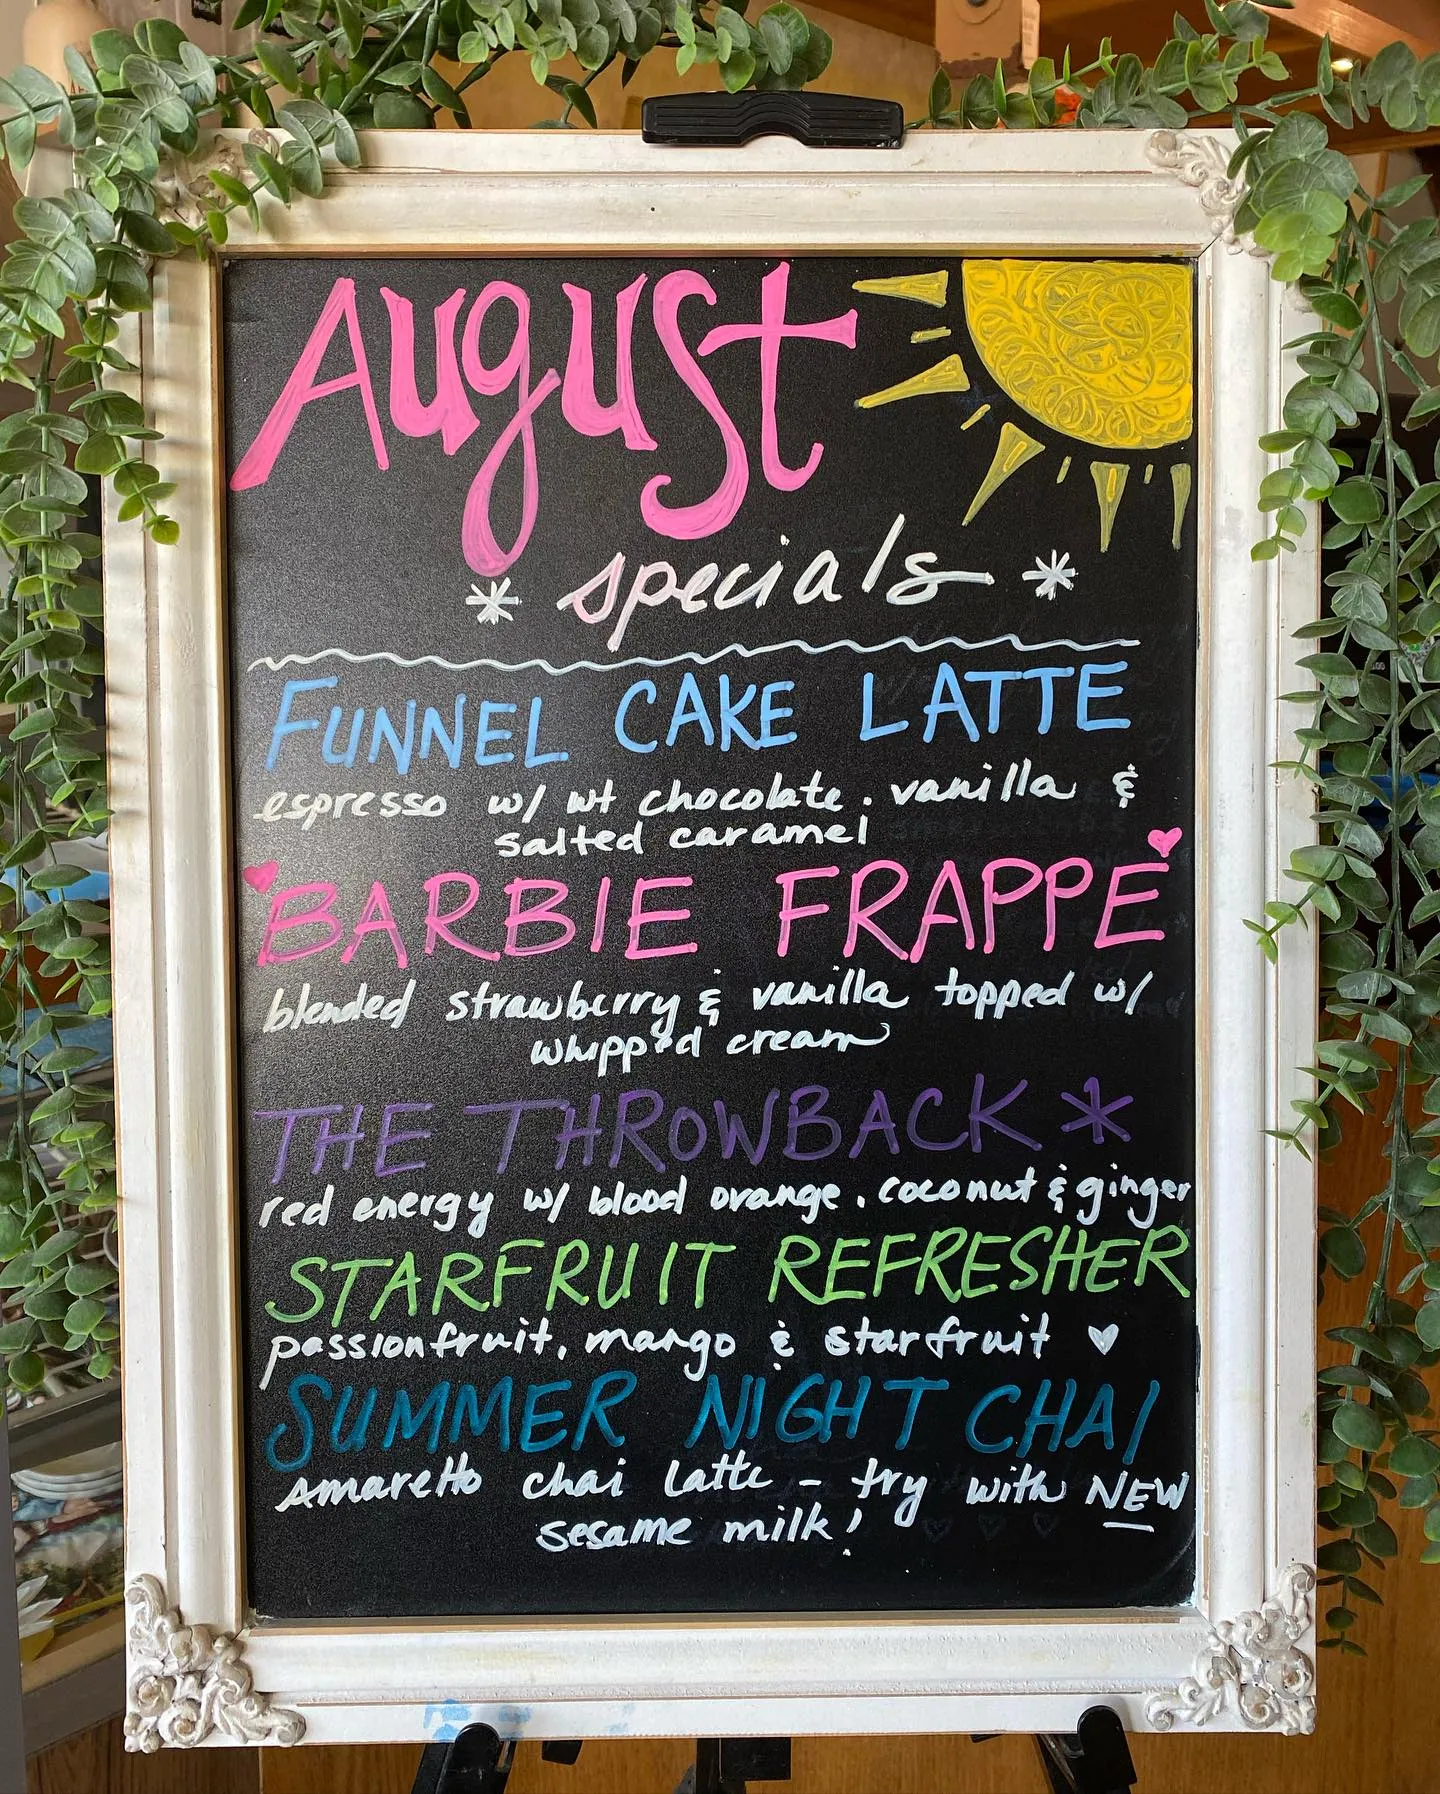 August
* specials *
FUNNEL CAKE LATTE
espresso w/ wt chocolate, vanilla &
salted caramel
BARBIE FRAPPE
blended strawberry & vanilla topped w/
whipped cream
THE THROWBACK *
red energy w/ blood orange, coconut & ginger
STARFRUIT REFRESHER
passionfruit, mango & starfruit ♥
SUMMER NIGHT CHAI
Amaretto chai latte - try with NEW
sesame milk!